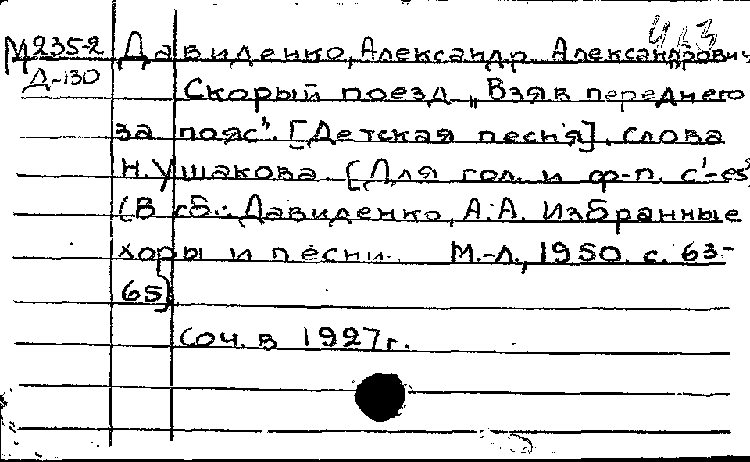 М235-2 Давиденко, Александр Александрович
Д-130 Скорый поезд „Взяв переднего
за пояс". [Детская песня]. Слова
Н. Ушакова. [Для гол. и ф-п. c¹-es²]
(В сб.: Давиденко, А.А. Избранные
хоры и песни. М.-Л., 1950. с. 63-
65)
Соч. в 1927 г.